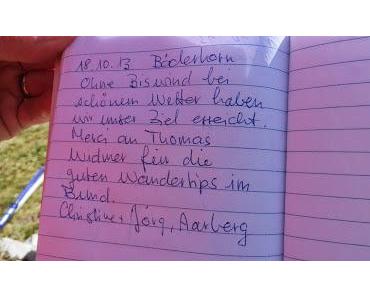 18.10.13 Bäderhorn
Ohne Biswind bei
schönem Wetter haben
wir unser Ziel erreicht.
Merci an Thomas
Widmer für die
guten Wandertips im
Bund.
Christine + Jörg, Aarberg